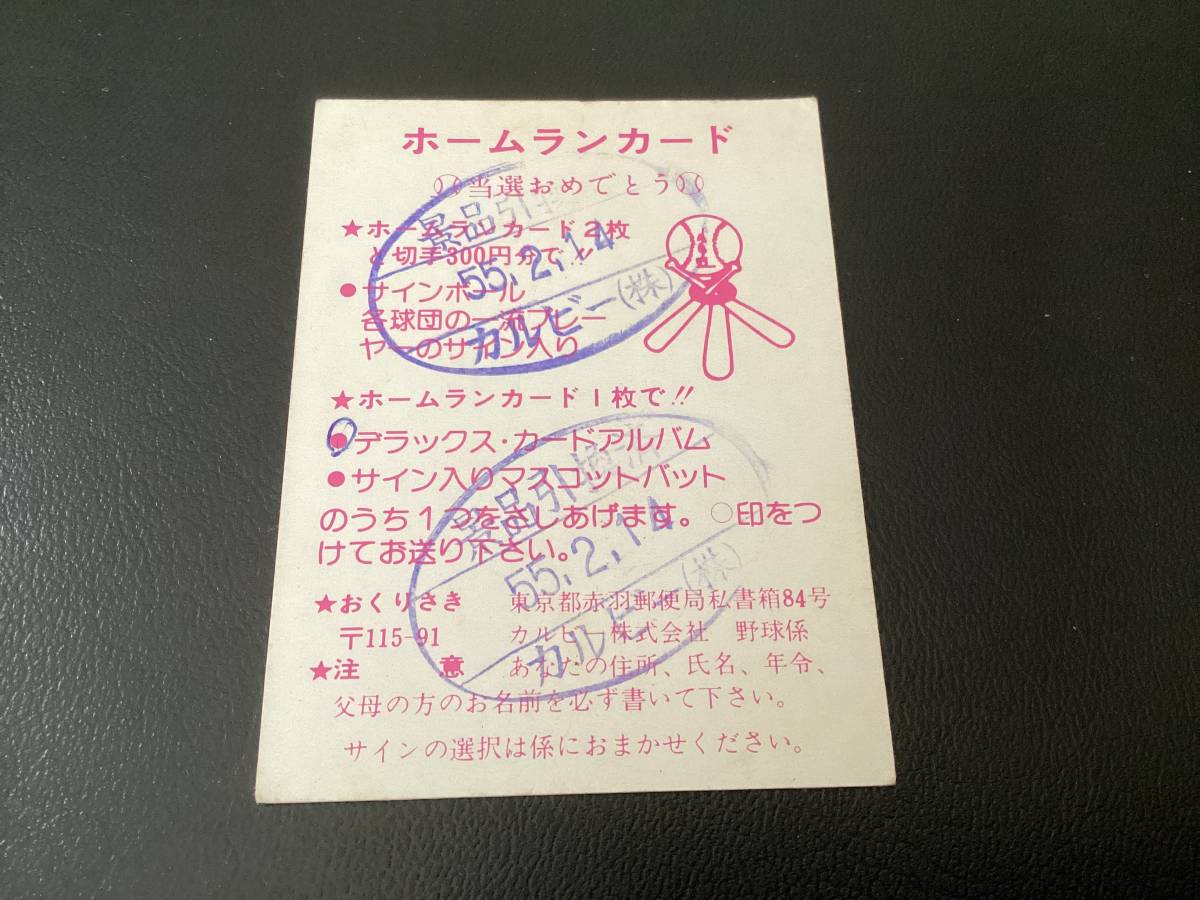 ホームランカード
当選おめでとう
★ホームランカード2枚
と切手300円分で!!
●サインボール
各球団の一流プレー
ヤーのサイン入り
景品引換済
55.2.14
カルビー(株)
★ホームランカード1枚で!!
●デラックス・カードアルバム
●サイン入りマスコットバット
のうち1つをさしあげます。○印をつ
けてお送り下さい。
景品引換済
55.2.14
カルビー(株)
★おくりさき 東京都赤羽郵便局私書箱84号
〒115-91 カルビー株式会社 野球係
★注 意 あなたの住所、氏名、年令、
父母の方のお名前を必ず書いて下さい。
サインの選択は係におまかせください。